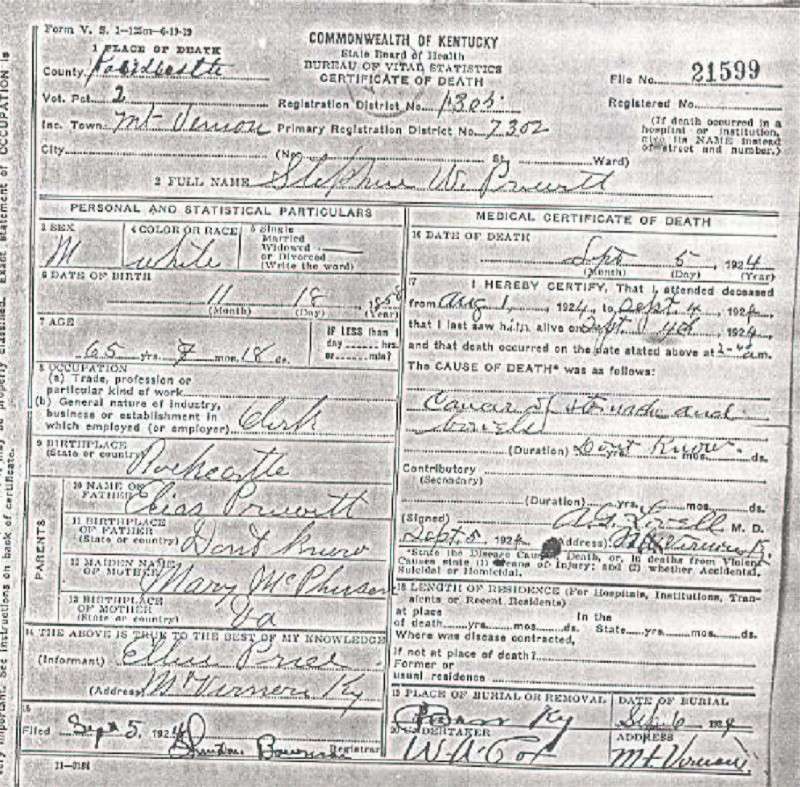 Form V. S. 1-125m-6-19-19
COMMONWEALTH OF KENTUCKY
State Board of Health
BUREAU OF VITAL STATISTICS
CERTIFICATE OF DEATH
1 PLACE OF DEATH
County Rockcastle
File No. 21599
Vot. Pct 2
Registration District No. 1305
Registered No.
Inc. Town Mt Vernon Primary Registration District No. 7302
(If death occurred in a hospital or institution, give its NAME instead of street and number.)
City (No. St Ward)
2 FULL NAME Stephen W. Prewitt
PERSONAL AND STATISTICAL PARTICULARS
3 SEX
M
4 COLOR OR RACE
White
5 Single
Married
Widowed
or Divorced
(Write the word)
6 DATE OF BIRTH
11 18 1858
(Month) (Day) (Year)
7 AGE
65 yrs. 7 mon. 18 ds.
IF LESS than 1
day hrs.
or min?
8 OCCUPATION
(a) Trade, profession or
particular kind of work
(b) General nature of industry,
business or establishment in
which employed (or employer) Clerk
9 BIRTHPLACE
(State or country) Rockcastle
PARENTS
10 NAME OF
FATHER Elias Prewitt
11 BIRTHPLACE
OF FATHER
(State or country) Dont Know
12 MAIDEN NAME
OF MOTHER Mary
13 BIRTHPLACE
OF MOTHER
(State or country) Va
14 THE ABOVE IS TRUE TO THE BEST OF MY KNOWLEDGE
(Informant)
(Address) Mt Vernon Ky
15
Filed Sept 5, 1924
Registrar
11-3184
MEDICAL CERTIFICATE OF DEATH
16 DATE OF DEATH
Sept 5, 1924
(Month) (Day) (Year)
17 I HEREBY CERTIFY, That I attended deceased
from Aug 1, 1924, to Sept. 4, 1924,
that I last saw him alive on Sept 4th, 1924,
and that death occurred on the date stated above at am.
The CAUSE OF DEATH* was as follows:
Cancer of stomach and
bowels
(Duration) Dont Know yrs. mos. ds.
Contributory
(Secondary)
(Duration) yrs. mos. ds.
(Signed) Lovell M. D.
Sept. 5, 1924 (Address) Mt Vernon Ky.
*State the Disease Causing Death, or, in deaths from Violent
Causes state (1) Means of Injury; and (2) whether Accidental,
Suicidal or Homicidal.
18 LENGTH OF RESIDENCE (For Hospitals, Institutions, Tran-
sients or Recent Residents)
at place In the
of death yrs. mos. ds. State yrs. mos. ds.
Where was disease contracted,
if not at place of death?
Former or
usual residence
19 PLACE OF BURIAL OR REMOVAL
Ky
DATE OF BURIAL
Sept. 6 1924
20 UNDERTAKER
W. A. Cox
ADDRESS
Mt Vernon